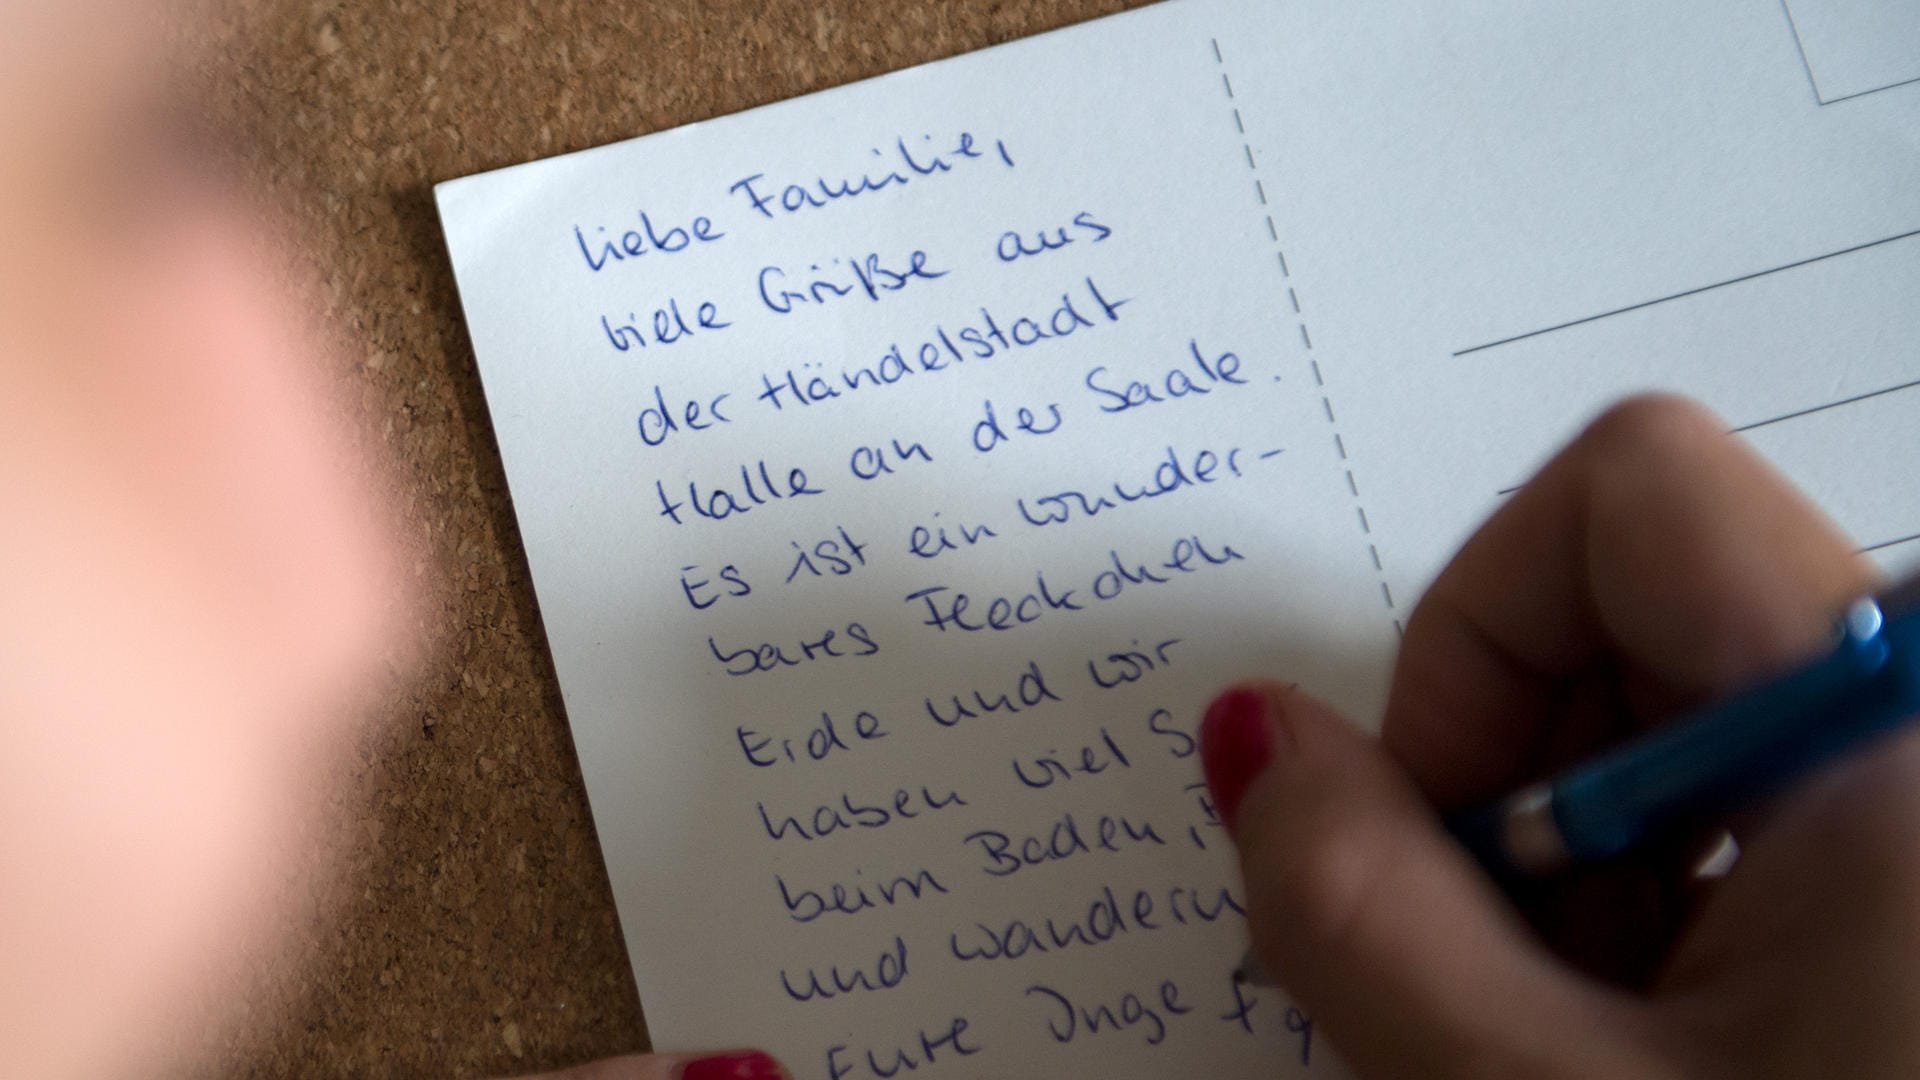 liebe Familie,
viele Grüße aus
der Händelstadt
Halle an der Saale.
Es ist ein wunder-
bares Fleckchen
Erde und wir
haben viel
beim Baden,
und wandern
Eure Inge +